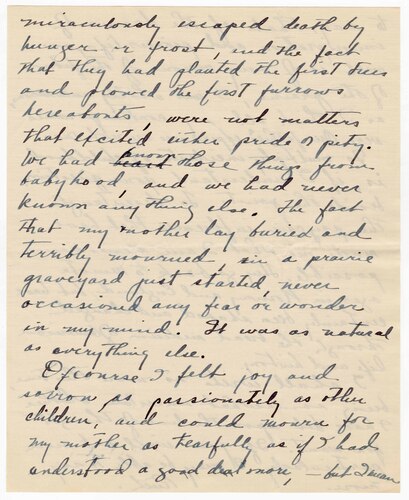 miraculously escaped death by
hunger or frost, and the fact
that they had planted the first trees
and plowed the first furrows
hereabouts, were not matters
that excited either pride or pity.
We had heard known those things from
babyhood, and we had never
known anything else. The fact
that my mother lay buried and
terribly mourned, in a prairie
graveyard just started, never
occasioned any fear or wonder
in my mind. It was as natural
as everything else.
Ofcourse I felt joy and
sorrow as passionately as other
children, and could mourn for
my mother as tearfully as if I had
understood a good deal more, – but I mean